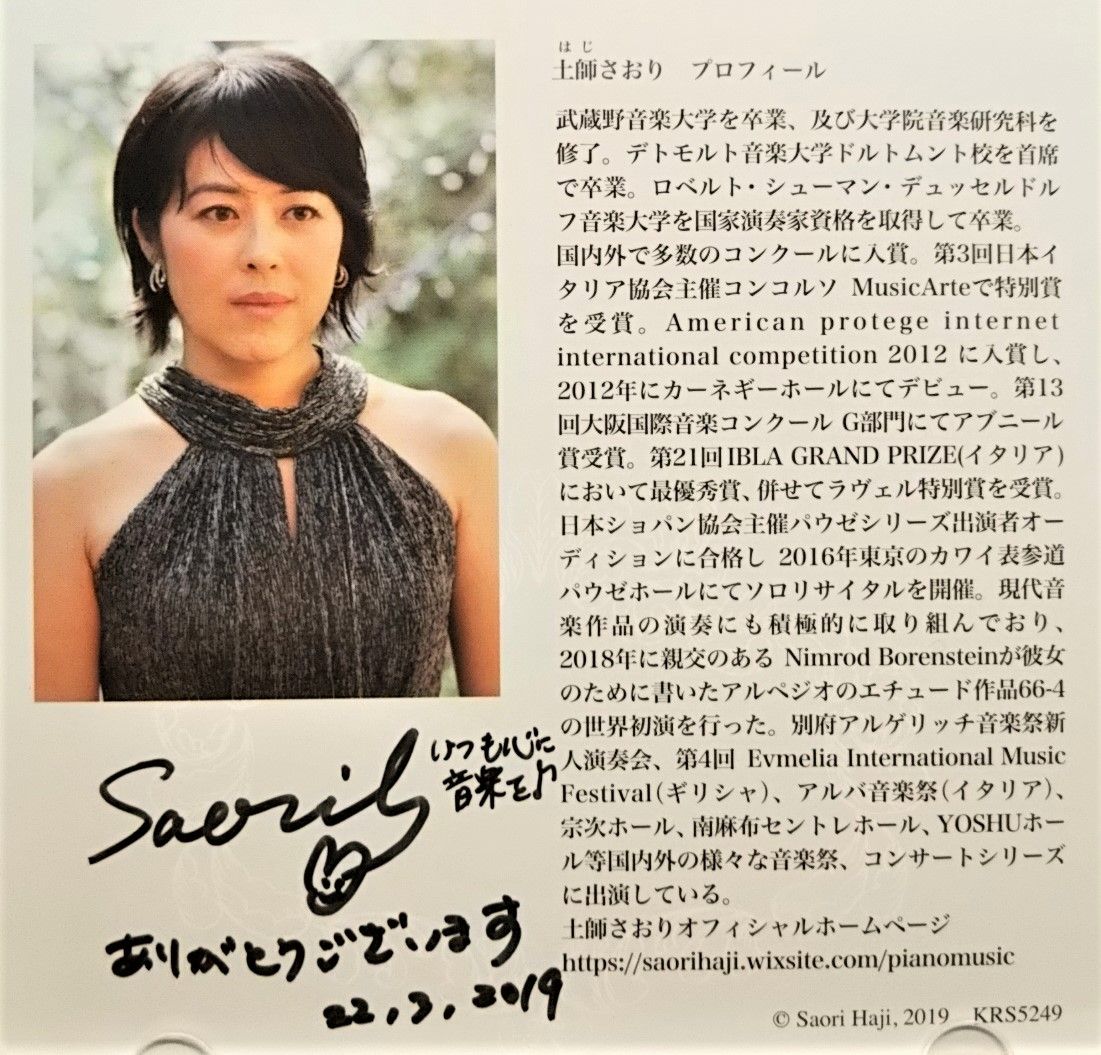 はじ
土師さおり　プロフィール
武蔵野音楽大学を卒業、及び大学院音楽研究科を
修了。デトモルト音楽大学ドルトムント校を首席
で卒業。ロベルト・シューマン・デュッセルドル
フ音楽大学を国家演奏家資格を取得して卒業。
国内外で多数のコンクールに入賞。第3回日本イ
タリア協会主催コンコルソ MusicArteで特別賞
を受賞。American protege internet
international competition 2012 に入賞し、
2012年にカーネギーホールにてデビュー。第13
回大阪国際音楽コンクール G部門にてアブニール
賞受賞。第21回IBLA GRAND PRIZE(イタリア)
において最優秀賞、併せてラヴェル特別賞を受賞。
日本ショパン協会主催パウゼシリーズ出演者オー
ディションに合格し 2016年東京のカワイ表参道
パウゼホールにてソロリサイタルを開催。現代音
楽作品の演奏にも積極的に取り組んでおり、
2018年に親交のある Nimrod Borensteinが彼女
のために書いたアルペジオのエチュード作品66-4
の世界初演を行った。別府アルゲリッチ音楽祭新
人演奏会、第4回 Evmelia International Music
Festival(ギリシャ)、アルバ音楽祭(イタリア)、
宗次ホール、南麻布セントレホール、YOSHUホー
ル等国内外の様々な音楽祭、コンサートシリーズ
に出演している。
土師さおりオフィシャルホームページ
https://saorihaji.wixsite.com/pianomusic
© Saori Haji, 2019　KRS5249
Saori
いつも心に
音楽を♪
ありがとうございます
22,3,2019